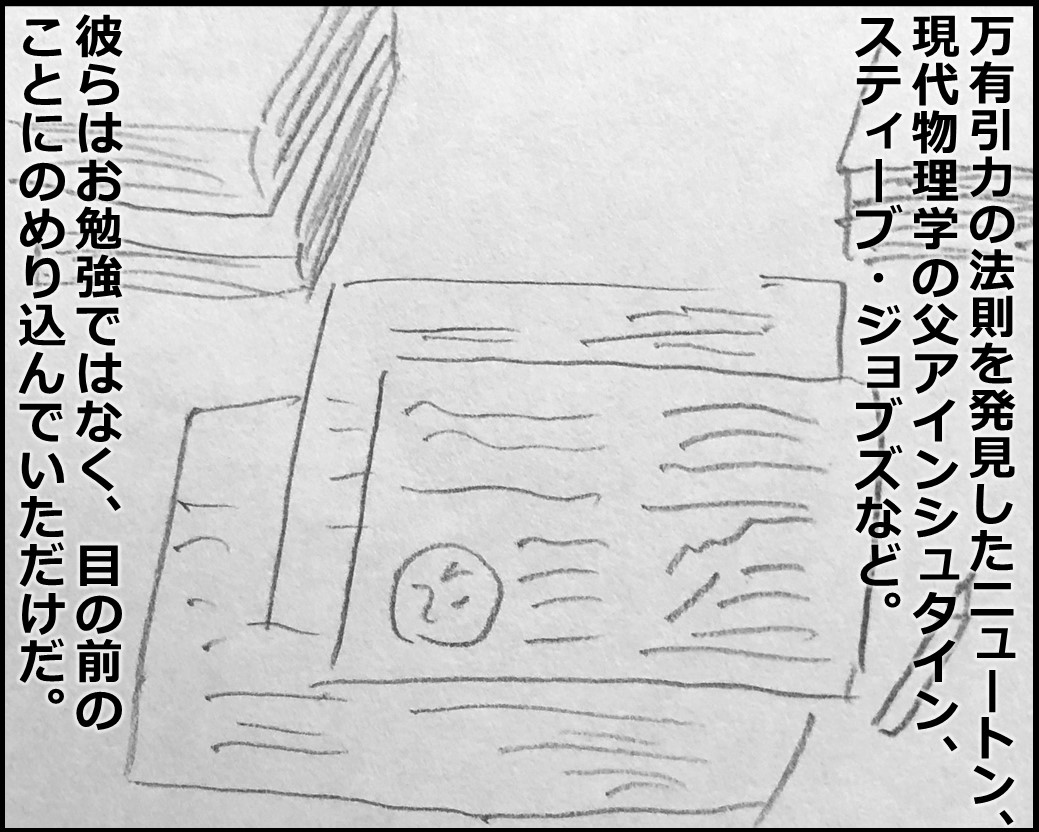 万有引力の法則を発見したニュートン、
現代物理学の父アインシュタイン、
スティーブ・ジョブズなど。
彼らはお勉強ではなく、目の前の
ことにのめり込んでいただけだ。